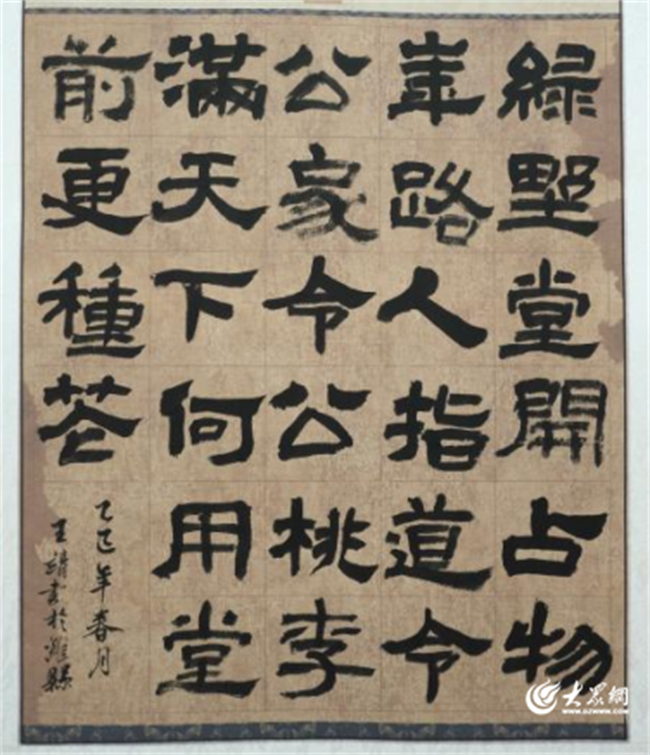 緑墅堂開占物
華路人指道令
公家令公桃李
滿天下何用堂
前更種花
乙巳年春月
王靖書於濰縣
大眾網
WWW.DZWWW.COM